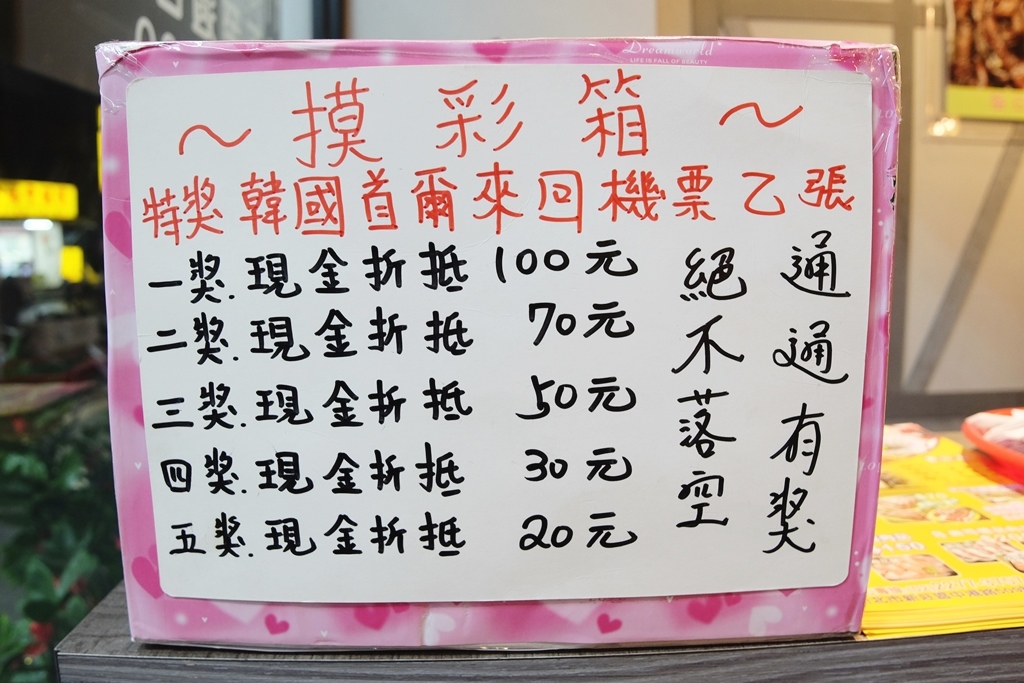 Dreamworld
LIFE IS FALL OF BEAUTY
～摸彩箱～
特奬 韓國首爾來回機票乙張
一奬.現金折抵 100元
二奬.現金折抵 70元
三奬.現金折抵 50元
四奬.現金折抵 30元
五奬.現金折抵 20元
通通有奬
絕不落空